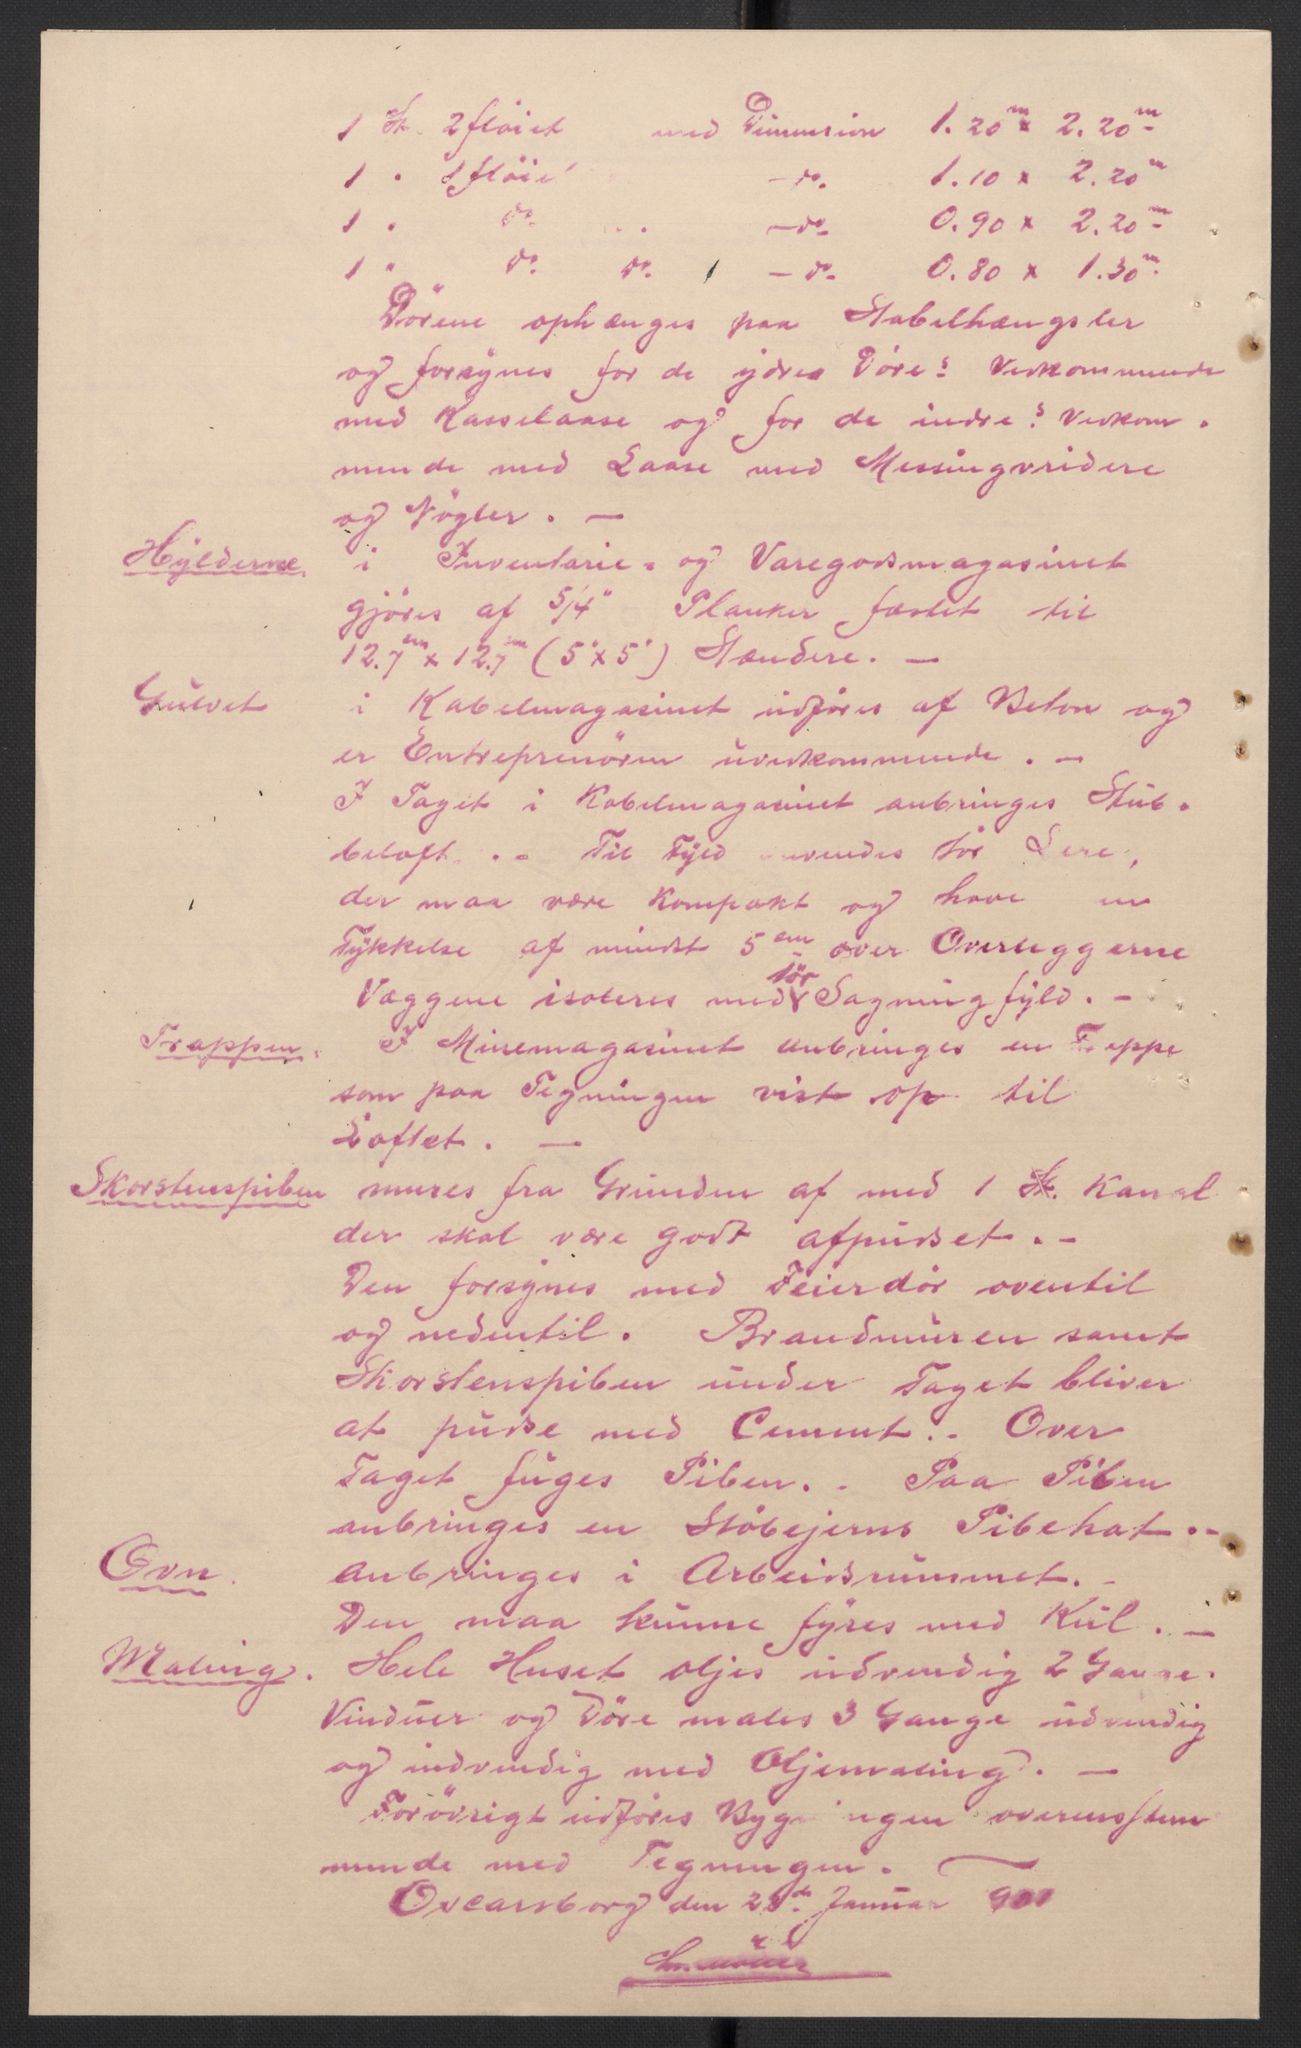 1 St. 2 fløiet med Dimension 1.20 m x 2.20 m
1 " 1 fløiet - do. 1.10 x 2.20 m
1 " do. - do. 0.90 x 2.20 m
1 " do. do. - do. 0.80 x 1.30 m.
Dörene ophænges paa Stabelhængsler
og forsynes for de ydres Döre: Vedkommende
med Kasselaase og for de indre: Vedkom-
mende med Laase med Messingvridere
og Nögler. —
Hylderne i Inventarie- og Varegodsmagasinet
gjöres af 5/4" Planker fæstet til
12.7 cm x 12.7 cm (5" x 5") Stændere. —
Gulvet i Kabelmagasinet udföres af Beton og
er Entreprenören uvedkommende. —
I Taget i Kabelmagasinet anbringes Stub-
beloft. - Til Fyld anvendes tör Lere,
der maa være kompakt og have en
Tykkelse af mindst 5 cm over Overliggerne
Væggene isoleres med tör Sagmugfyld. —
Trappen. I Minemagasinet anbringes en Trappe
som paa Tegningen vist op til
Loftet. —
Skorstenspiben mures fra Grunden af med 1 St. Kanal
der skal være godt afpudset. —
Den forsynes med Feierdör oventil
og nedentil. Brandmuren samt
Skorstenspiben under Taget bliver
at pudse med Cement. - Over
Taget fuges Piben. - Paa Piben
anbringes en Stöbejerns Pibehat. -
Ovn. anbringes i Arbeidsrummet. -
Den maa kunne fyres med Kul. —
Maling. Hele Huset oljes udvendig 2 Gange.
Vinduer og Döre males 3 Gange udvendig
og indvendig med Oljemaling. —
Forövrigt udföres Bygningen overensstem
mende med Tegningen. —
Oscarsborg den 23de Januar 900